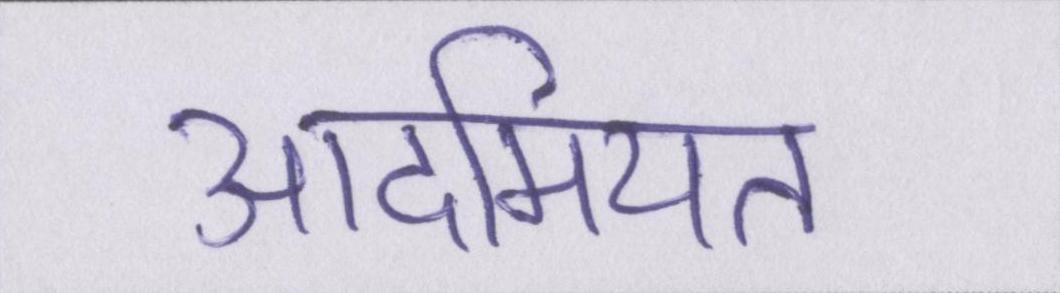 आदमिंयत